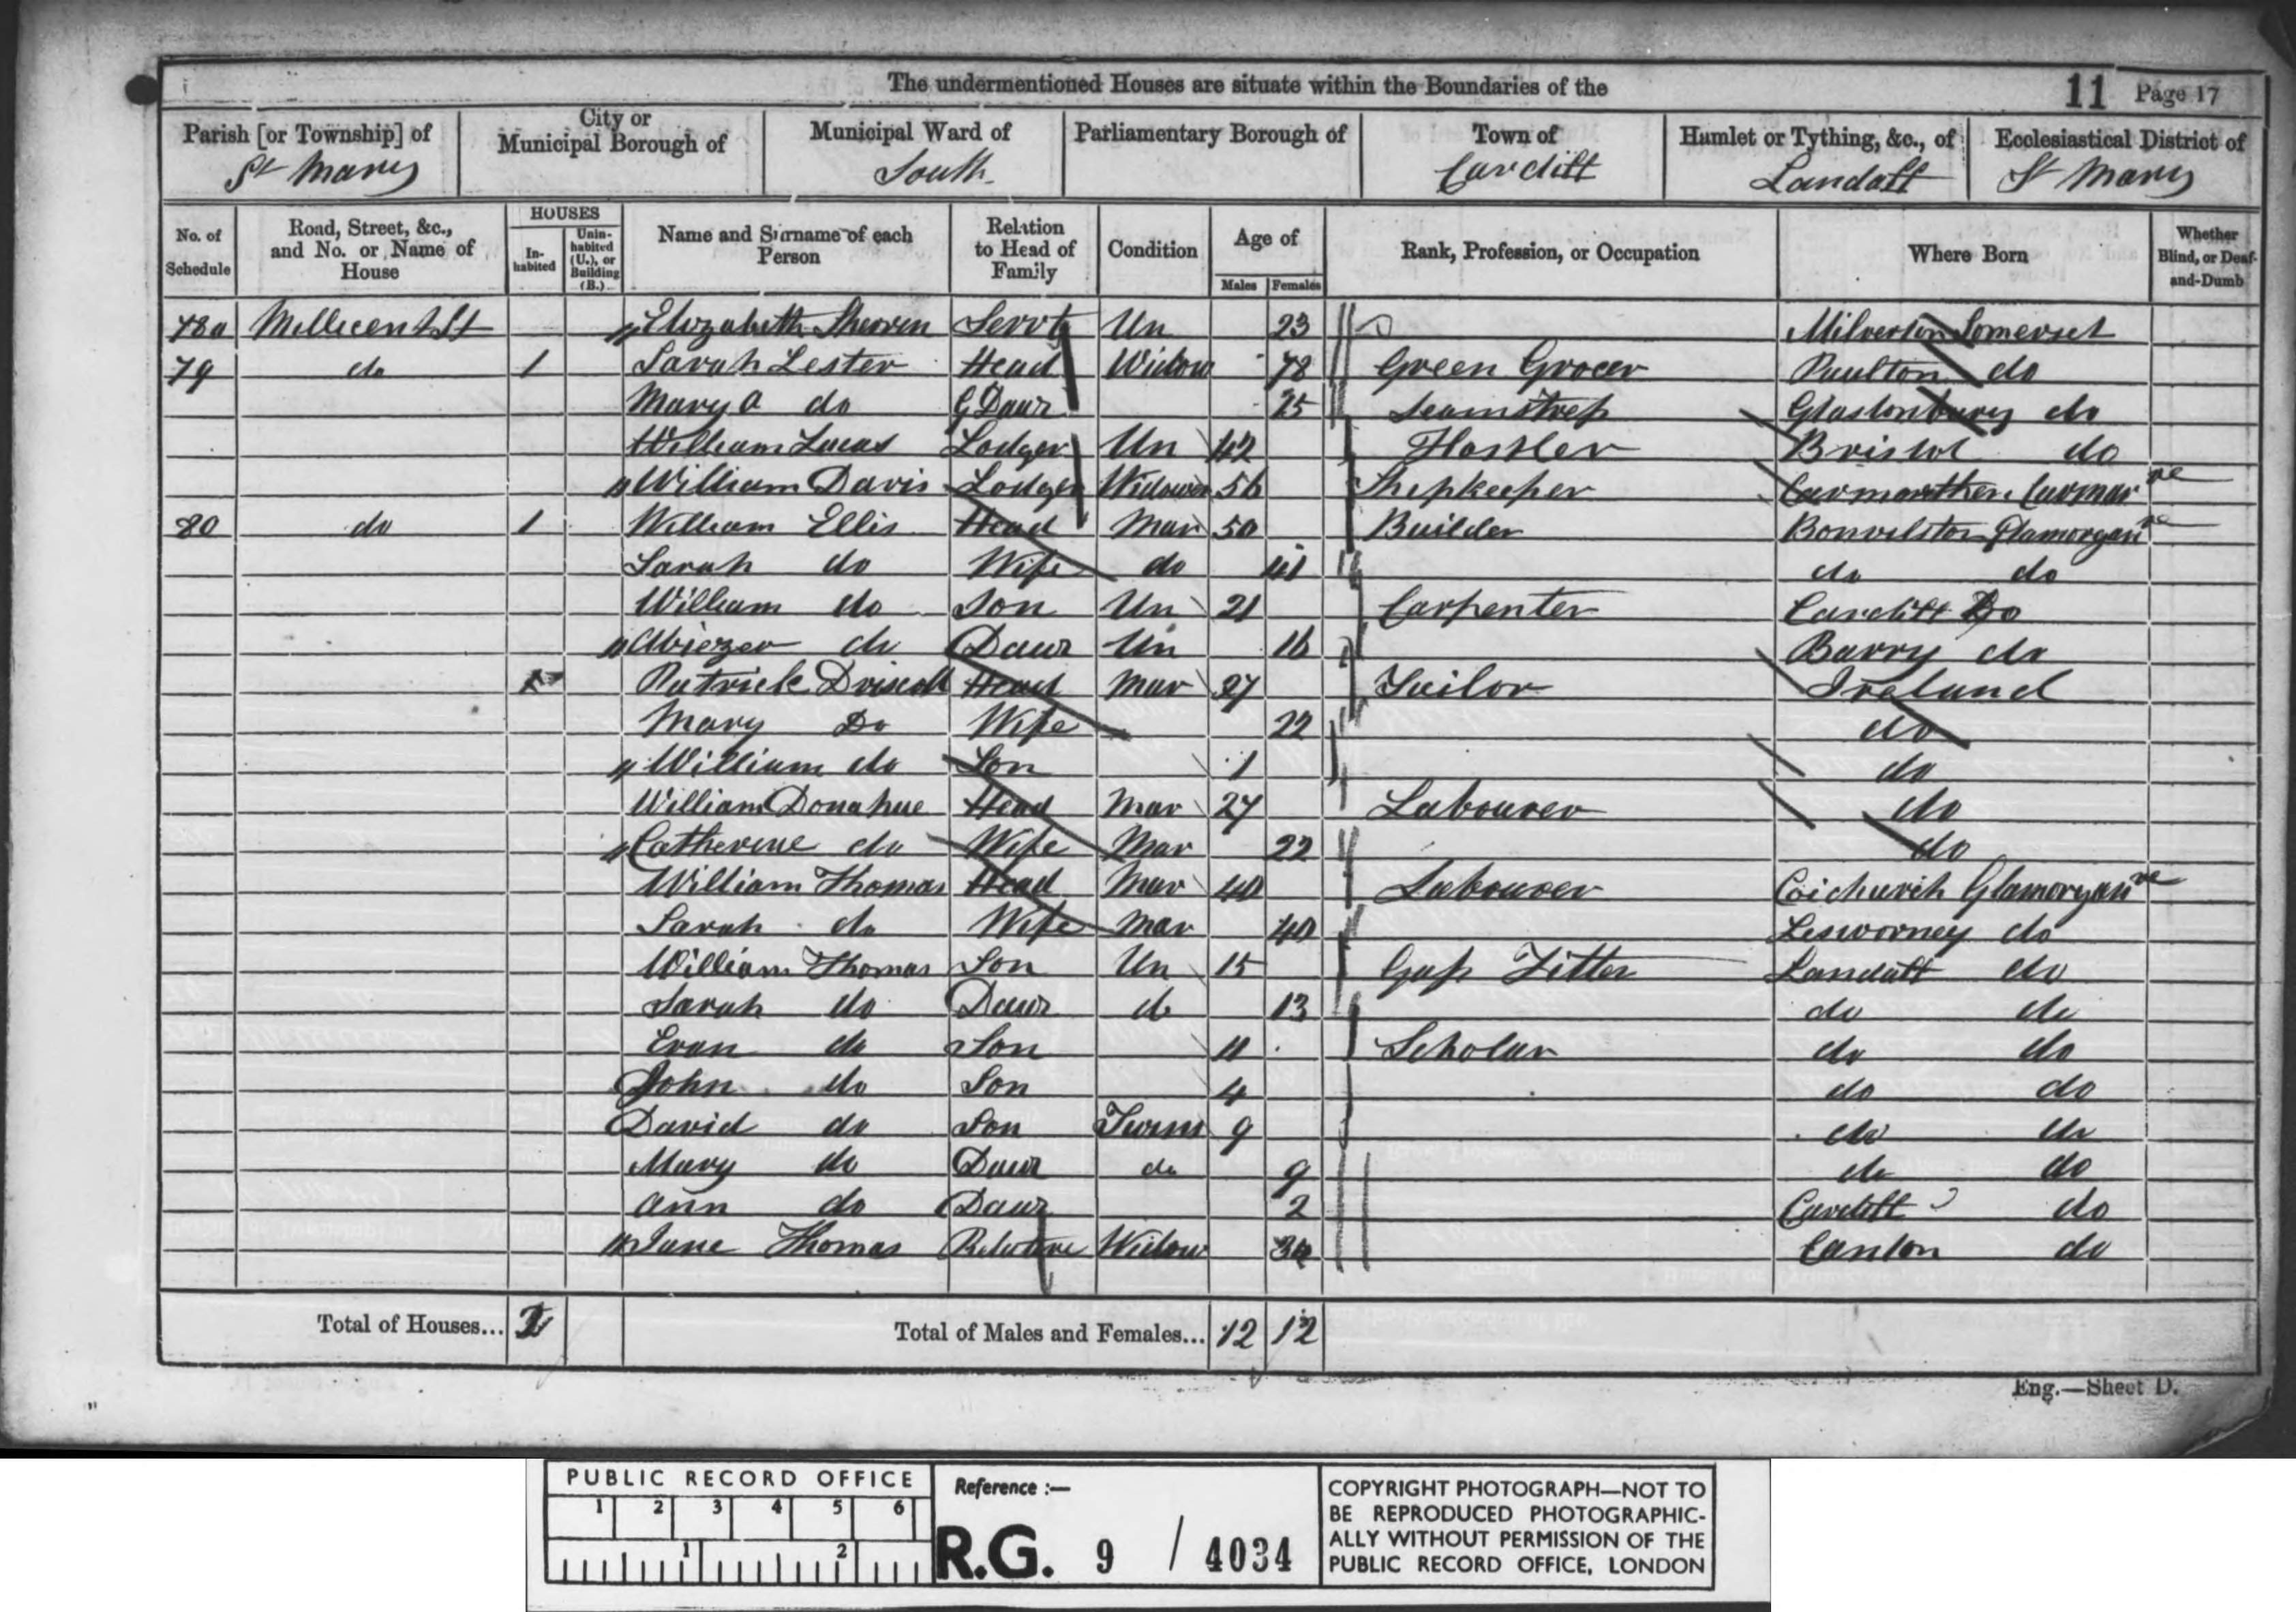 The undermentioned Houses are situate within the Boundaries of the 11 Page 17
Parish [or Township] of St Marys
City or Municipal Borough of
Municipal Ward of South
Parliamentary Borough of
Town of Cardiff
Hamlet or Tything, &c., of Landaff
Ecclesiastical District of St Marys
No. of Schedule
Road, Street, &c., and No. or Name of House
HOUSES
In-habited
Unin-habited (U.), or Building (B.)
Name and Surname of each Person
Relation to Head of Family
Condition
Age of
Males Females
Rank, Profession, or Occupation
Where Born
Whether Blind, or Deaf-and-Dumb
78a Millicent St Elizabeth Servt Un 23 Milverton Somerset
79 do 1 Sarah Lester Head Widow 78 Green Grocer Paulton do
Mary A do G Daur 25 Seamstress Glastonbury do
William Lucas Lodger Un 42 Hostler Bristol do
William Davis Lodger Widower 56 Shipkeeper Carmarthen Carmar re
80 do 1 William Ellis Head Mar 50 Builder Bonvilston Glamorgan re
Sarah do Wife do 41 do do
William do Son Un 21 Carpenter Cardiff Do
Abiezer do Daur Un 16 Barry do
Patrick Driscoll Head Mar 27 Tailor Ireland
Mary Do Wife 22 do
William do Son 1 do
William Donahue Head Mar 27 Labourer do
Catherine do Wife Mar 22 do
William Thomas Head Mar 40 Labourer Coichurch Glamorgan re
Sarah do Wife Mar 40 Lisworney do
William Thomas Son Un 15 Gass Fitter Landaff do
Sarah do Daur do 13 do do
Evan do Son 11 Scholar do do
John do Son 4 do do
David do Son Twins 9 do do
Mary do Daur do 9 do do
Ann do Daur 2 Cardiff do
Jane Thomas Relative Widow Canton do
Total of Houses... 2 Total of Males and Females... 12 12
Eng.—Sheet D.
PUBLIC RECORD OFFICE
1 2 3 4 5 6
1 2
Reference :—
R.G. 9 / 4034
COPYRIGHT PHOTOGRAPH—NOT TO
BE REPRODUCED PHOTOGRAPHIC-
ALLY WITHOUT PERMISSION OF THE
PUBLIC RECORD OFFICE, LONDON